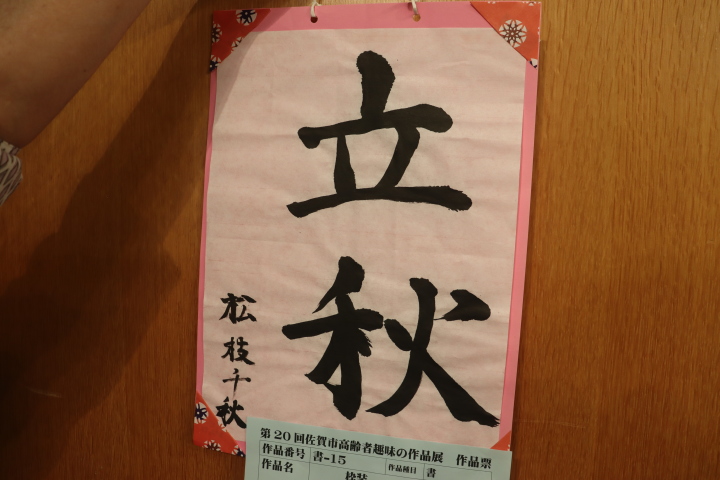 立秋
松枝千秋
第20回佐賀市高齢者趣味の作品展 作品票
作品番号 書-15 作品種目 書
作品名